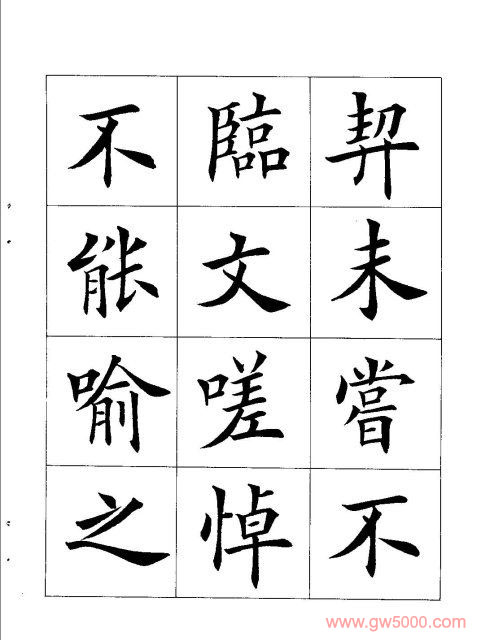 契未嘗不
臨文嗟悼
不能喻之
www.gw5000.com